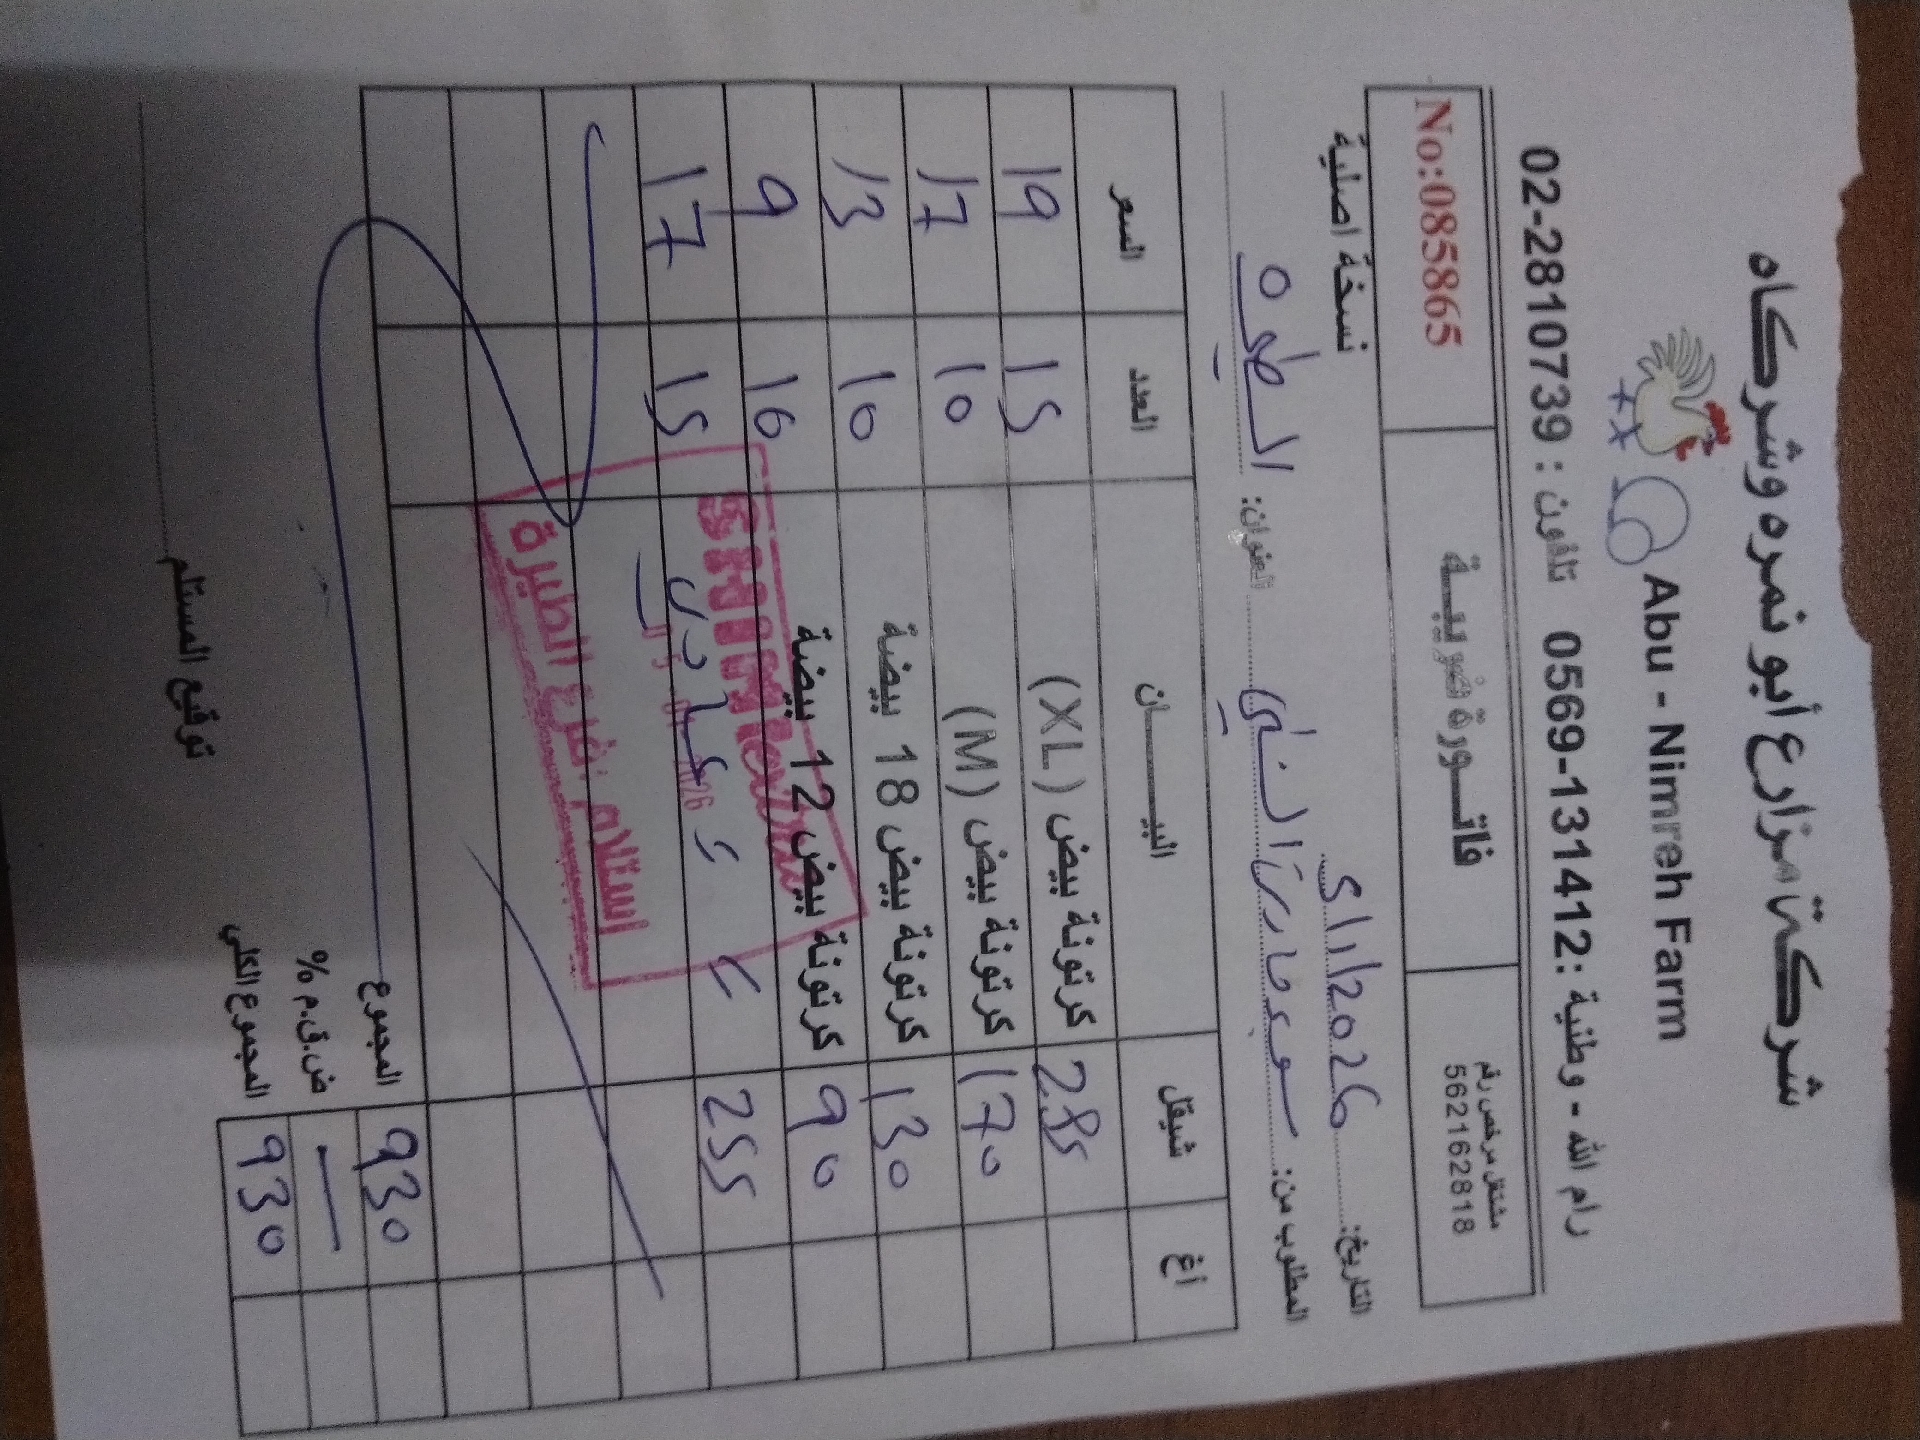 شركة مزارع أبو نمره وشركاه
Abu - Nimreh Farm
رام الله - وطنية :0569-131412 تلفون : 02-2810739
مشتغل مرخص رقم
562162818
فاتـــورة ضريبيـــة
No:085865
التاريخ: 2026/1/5
نسخة اصلية
المطلوب من: سوبر ماركت السني العنوان: الطيره
اغ شيقل البيـــــــان العدد السعر
285 كرتونة بيض (XL) 15 19
170 كرتونة بيض (M) 10 17
130 كرتونة بيض 18 بيضة 10 13
90 كرتونة بيض 12 بيضة 10 9
255 15 17
استلام فرع الطيرة
المجموع 930
ض.ق.م %
المجموع الكلي 930
توقيع المستلم